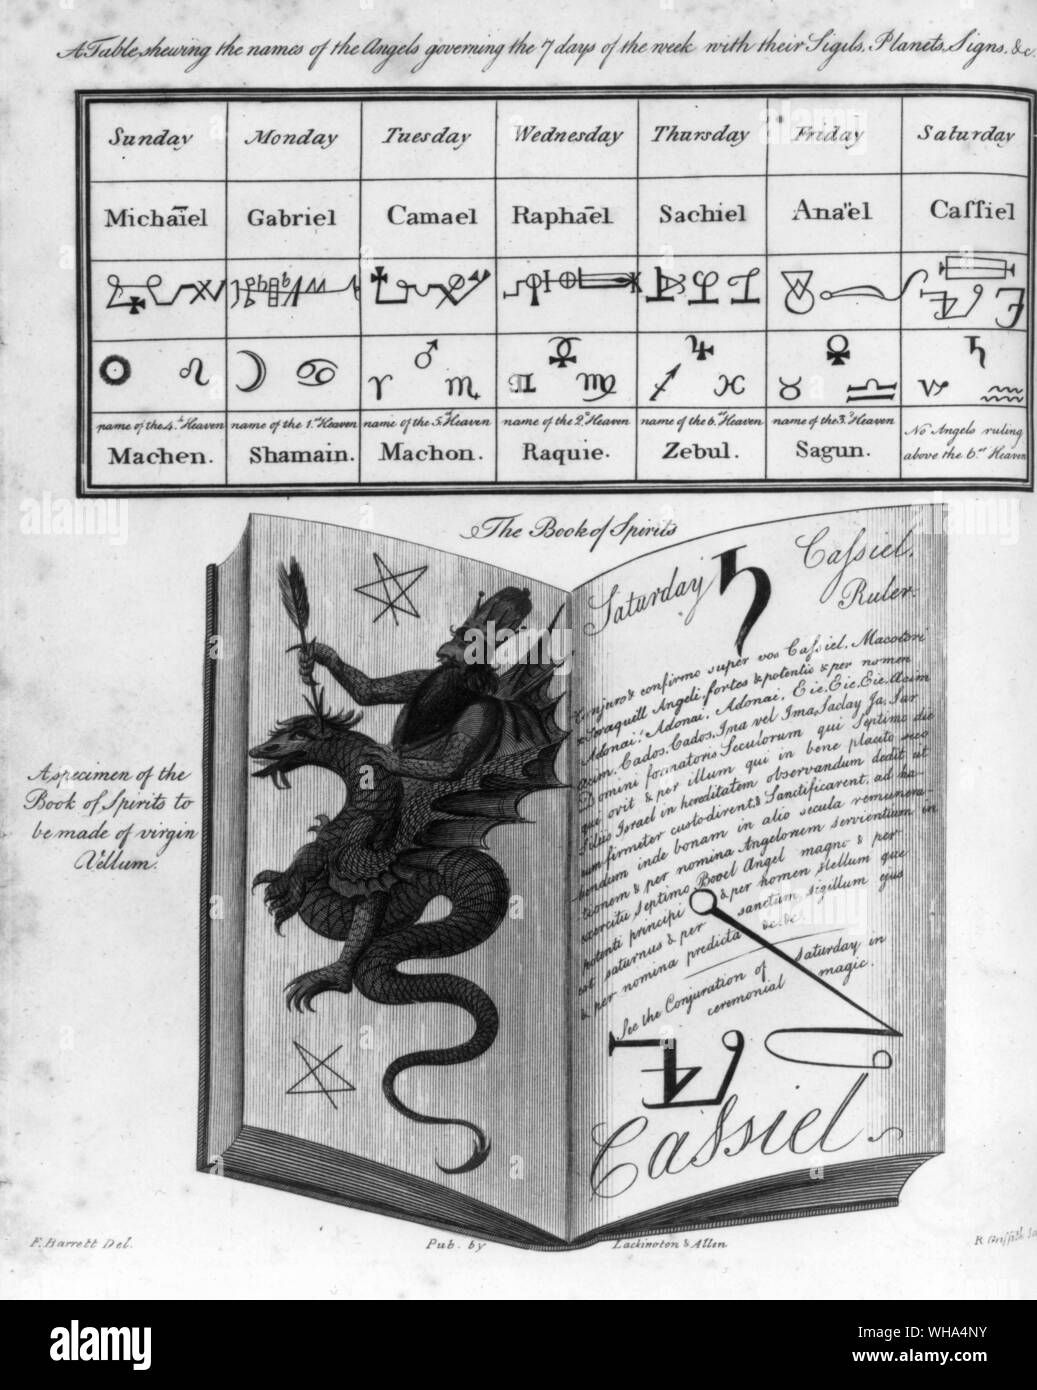 A Table shewing the names of the Angels governing the 7 days of the week with their Sigils, Planets, Signs, &c.
Sunday Monday Tuesday Wednesday Thursday Friday Saturday
Michaïel Gabriel Camael Raphaēl Sachiel Ana"el Caſſiel
☉ ♌ ☽ ♋ ♂ ♈ ♏ ☿ ♊ ♍ ♃ ♐ ♓ ♀ ♉ ♎ ♄ ♑ ♒
name of the 4.th Heaven name of the 1.st Heaven name of the 5.th Heaven name of the 2.d Heaven name of the 6.th Heaven name of the 3.d Heaven No Angels ruling
Machen. Shamain. Machon. Raquie. Zebul. Sagun. above the 6.th Heaven
The Book of Spirits
Saturday ♄ Caſsiel.
Ruler.
Conjuro & confirmo super vos Caſsiel, Macotori
& Seraquiell Angeli fortes & potentis & per nomen
Adonai. Adonai. Adonai. Eie. Eie. Eie. Acim
Acim. Cados. Cados. Ina vel Ima. Saclay Ja. Sar
Domini formatoris Seculorum qui Septimo die
que ovit & per illum qui in bene placito suo
filiis Israel in hereditatem observandum dedit ut
eum firmiter custodirent & Sanctificarent. ad ha-
bendum inde bonam in alio secula remunera-
tionem & per nomina Angelorum servientium in
exercitu septimo Booel Angel magno & per
potenti principi & per nomen stellum que
est saturnus & per sanctum sigillum ejus
& per nomina predicta &c. &c.
See the Conjuration of Saturday in
ceremonial magic.
Caſsiel.
A specimen of the
Book of Spirits to
be made of virgin
Vellum.
F. Barrett Del.
Pub. by Lackington & Allen
R. Griffith
alamy
alamy
alamy
a
a
a
a
alamy
Image ID: WHA4NY
www.alamy.com